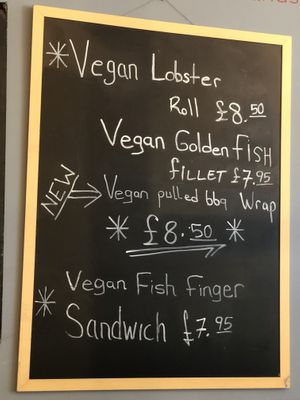 *Vegan Lobster
Roll £8.50
Vegan Golden FiSH
fiLLET £7.95
NEW → Vegan pulled bbq Wrap
* £8.50 *
Vegan Fish Finger
* Sandwich £7.95